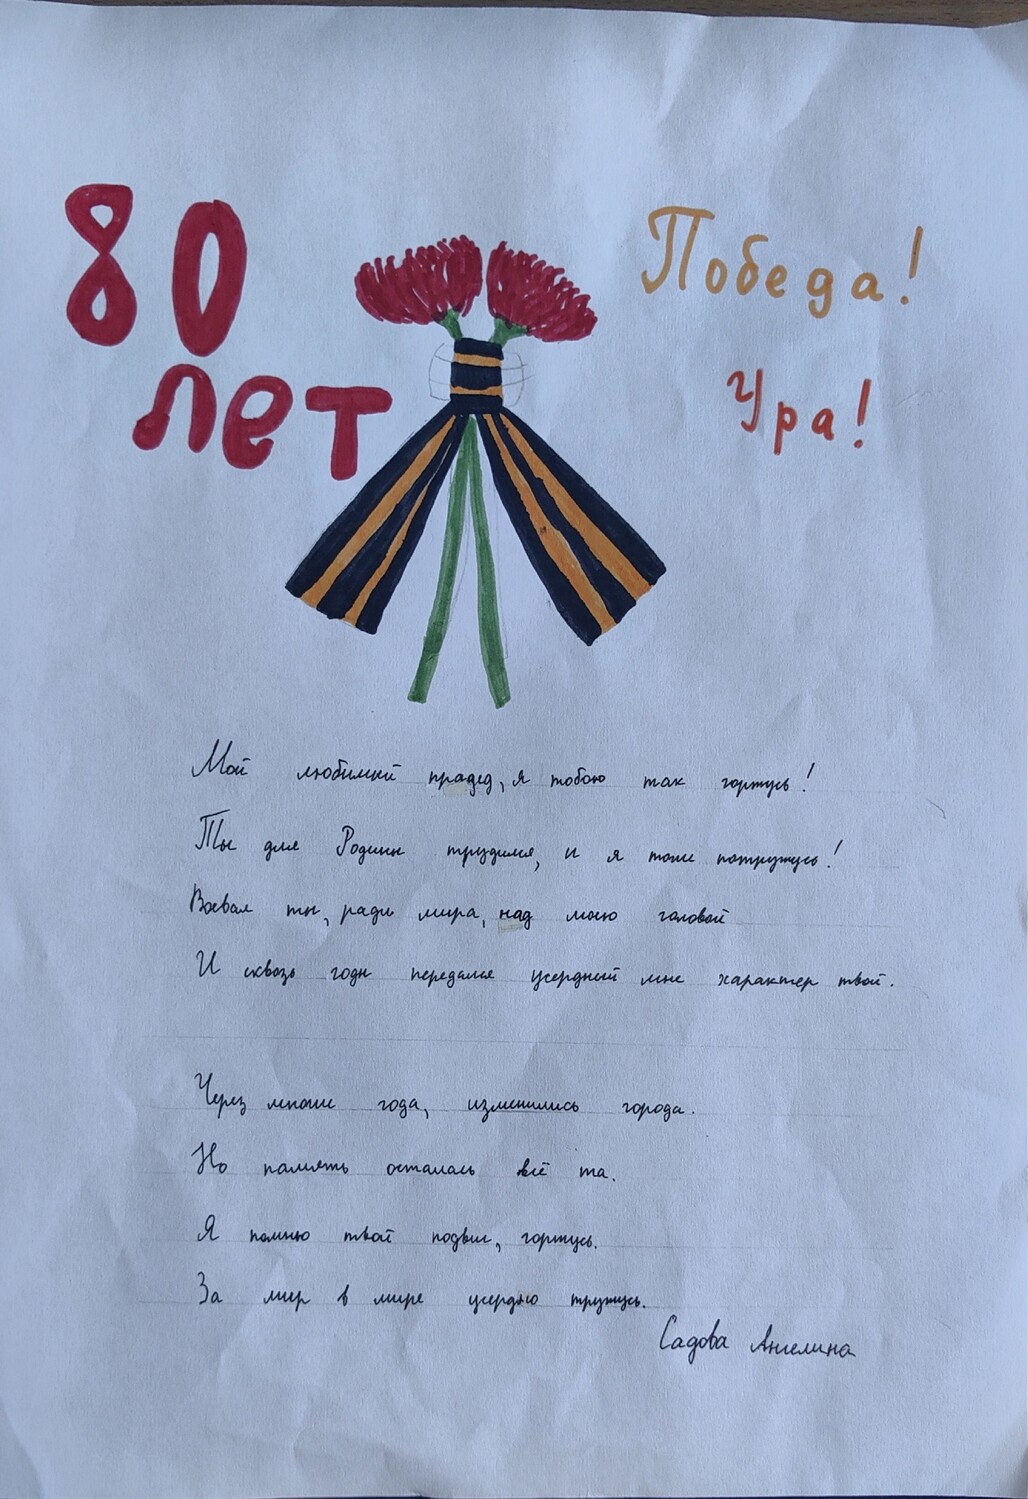 80
лет
Победа!
Ура!
Мой любимый прадед, я тобою так горжусь!
Ты для Родины трудился, и я тоже потружусь!
Воевал ты, ради мира, над моею головой
И сквозь годы передался усердный мне характер твой.
Через многие года, изменились города.
Но память осталась всё та.
Я помню твой подвиг, горжусь.
За мир в мире усердно тружусь.
Садова Ангелина